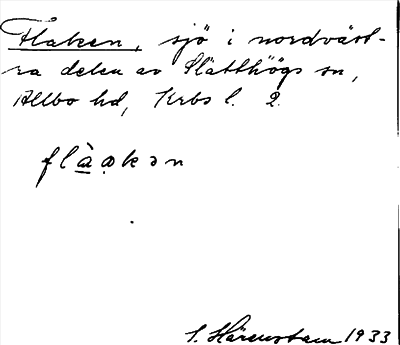 Flaken, sjö i nordväst-
ra delen av Slätthögs sn,
Allbo hd, Krbs l. 2.
flàạkən
S. Härenstam 1933